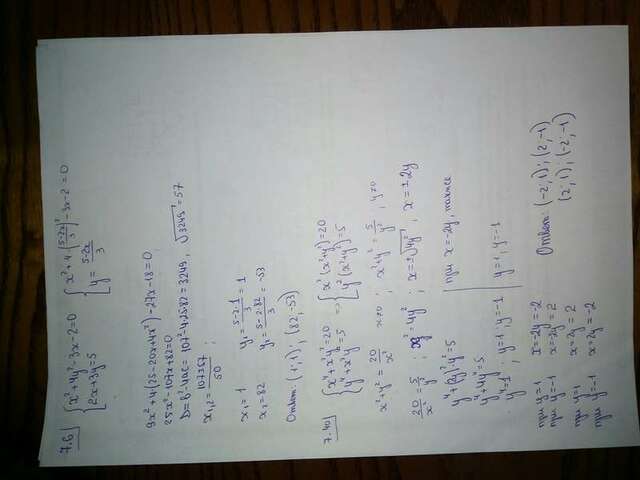 7.6
{ x² + 4y² - 3x - 2 = 0
{ 2x + 3y = 5
{ x² + 4·((5-2x)/3)² - 3x - 2 = 0
{ y = (5-2x)/3
9x² + 4(25 - 20x + 4x²) - 27x - 18 = 0,
25x² - 107x + 82 = 0
D = b² - 4ac = 107² - 4·25·82 = 3249, √3249 = 57
x₁,₂ = (107±57)/50 ;
x₁ = 1 y₁ = (5-2·1)/3 = 1
x₂ = 82 y₂ = (5-2·82)/3 = -53
Ответ: (1; 1); (82; -53)
7.40
{ x⁴ + x²y² = 20
{ y⁴ + x²y² = 5
⇒ { x²(x²+y²) = 20
{ y²(x²+y²) = 5
x² + y² = 20/x² x≠0 ; x² + y² = 5/y² , y≠0
20/x² = 5/y² ; x² = 4y² ; x = ±√4y² ; x = ±2y
y⁴ + (2y)²·y² = 5
y⁴ + 4y⁴ = 5
y⁴ = 1 , y = 1 ; y = -1
при x = -2y, также
y = 1, y = -1
при y = 1 x = 2y = 2
при y = -1 x = 2y = 2
при y = 1 x = -2y = 2
при y = -1 x = -2y = 2
Ответ: (-2; 1); (2; -1)
(2; 1); (-2; -1)